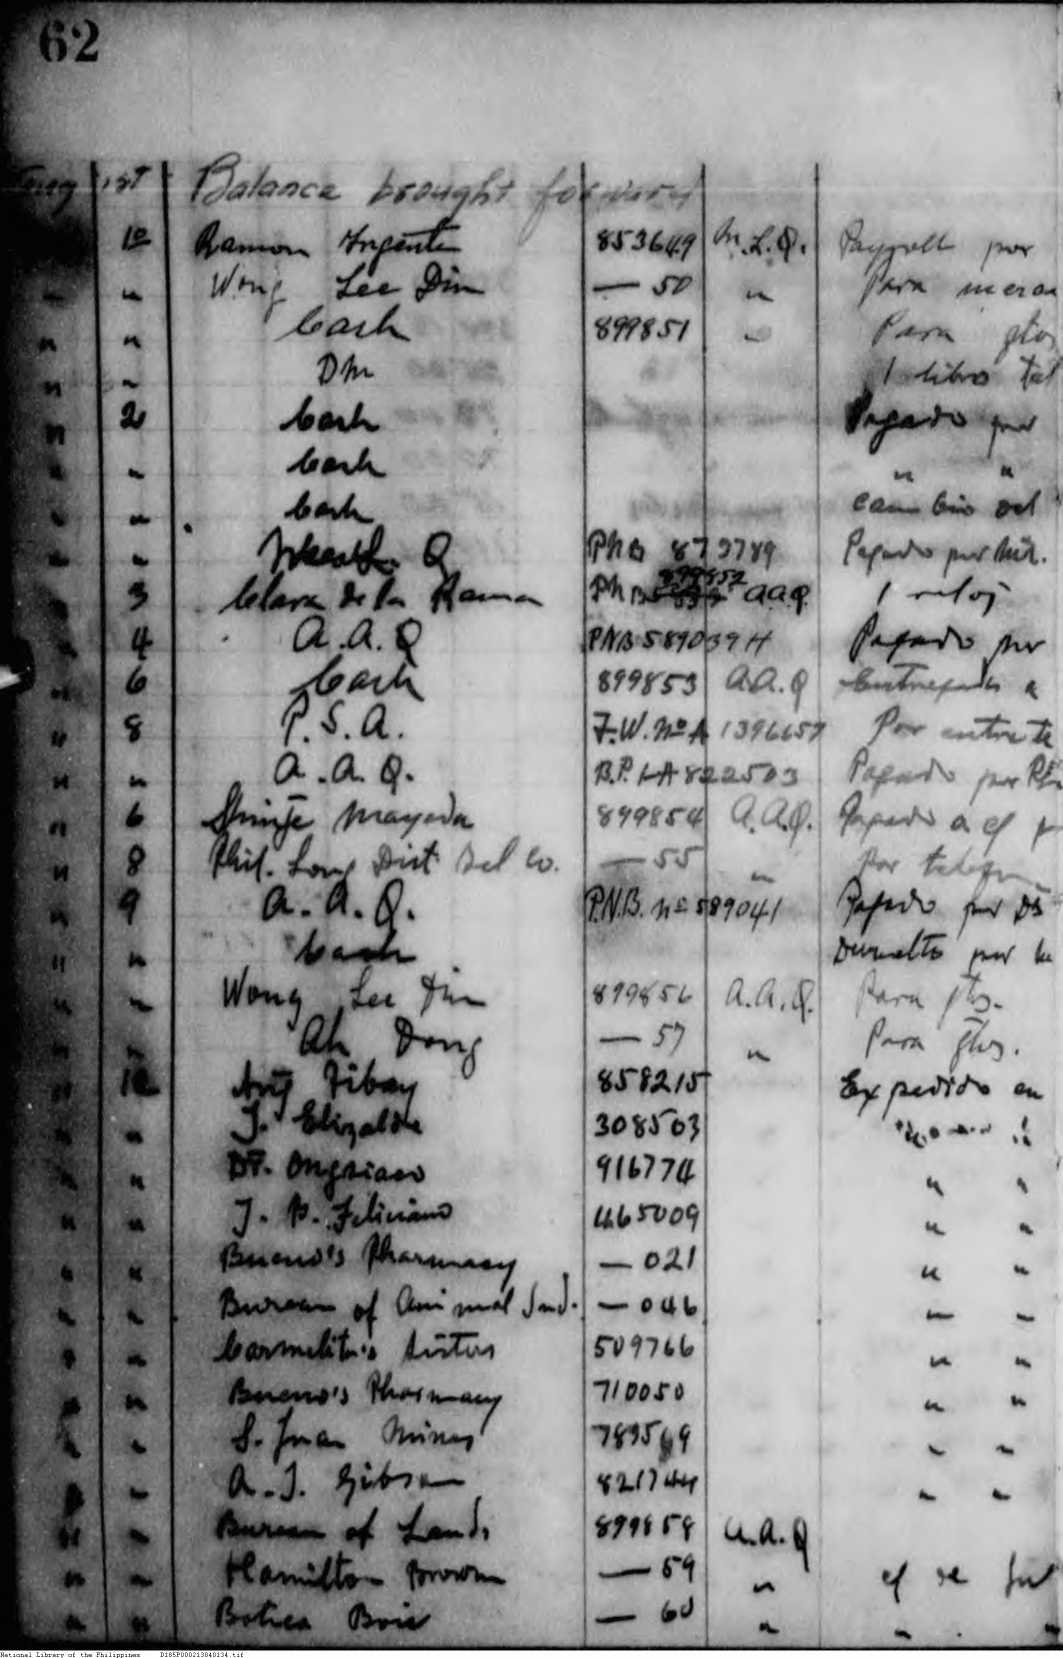 62
Aug 1st Balance brought forward
" 10 Ramon 853649 M.L.Q. Payroll por
" " Wong Lee Din — 50 " Para
" " Cash 899851 " Para gtos
" " DM 1 libro
" 2 Cash Pagado por
" " Cash " "
" " Cash Cambio del
" " Q PNB 873789 Pagado por
" 3 Clara de la Rama PNB 899852 A.A.Q. 1 reloj
" 4 A.A.Q PNB 589039 H Pagado por
" 6 Cash 899853 A.A.Q Entregado a
" 8 P.S.A. F.W. No A 1396657 Por
" " A.A.Q. B.P.I-A 822503 Pagado por
" 6 Mayeda 899854 A.A.Q. Pagado a cf
" 8 Phil. Long Dist Tel Co. — 55 " Por
" 9 A.A.Q. P.N.B. No 589041 Pagado por
" " Cash Devuelto por
" " Wong Lee Din 899856 A.A.Q. Para gtos.
" " Ah Dong — 57 " Para gtos.
" 10 Ang Tibay 858215 Expedido en
" " J. Elizalde 308503
" " Dr. Ongsiaco 916774 " "
" " J. B. Feliciano 465009 " "
" " Bueno's Pharmacy — 021 " "
" " Bureau of Animal Ind. — 046 " "
" " Carmelita's Sisters 509766 " "
" " Bueno's Pharmacy 710050 " "
" " S. Juan Mines 789569 " "
" " A. J. Gibson 821744 " "
" " Bureau of Lands 899858 A.A.Q
" " Hamilton Brown — 59 " cf se
" " Botica Boie — 60 " " "
National Library of the Philippines D185P000213040134.tif